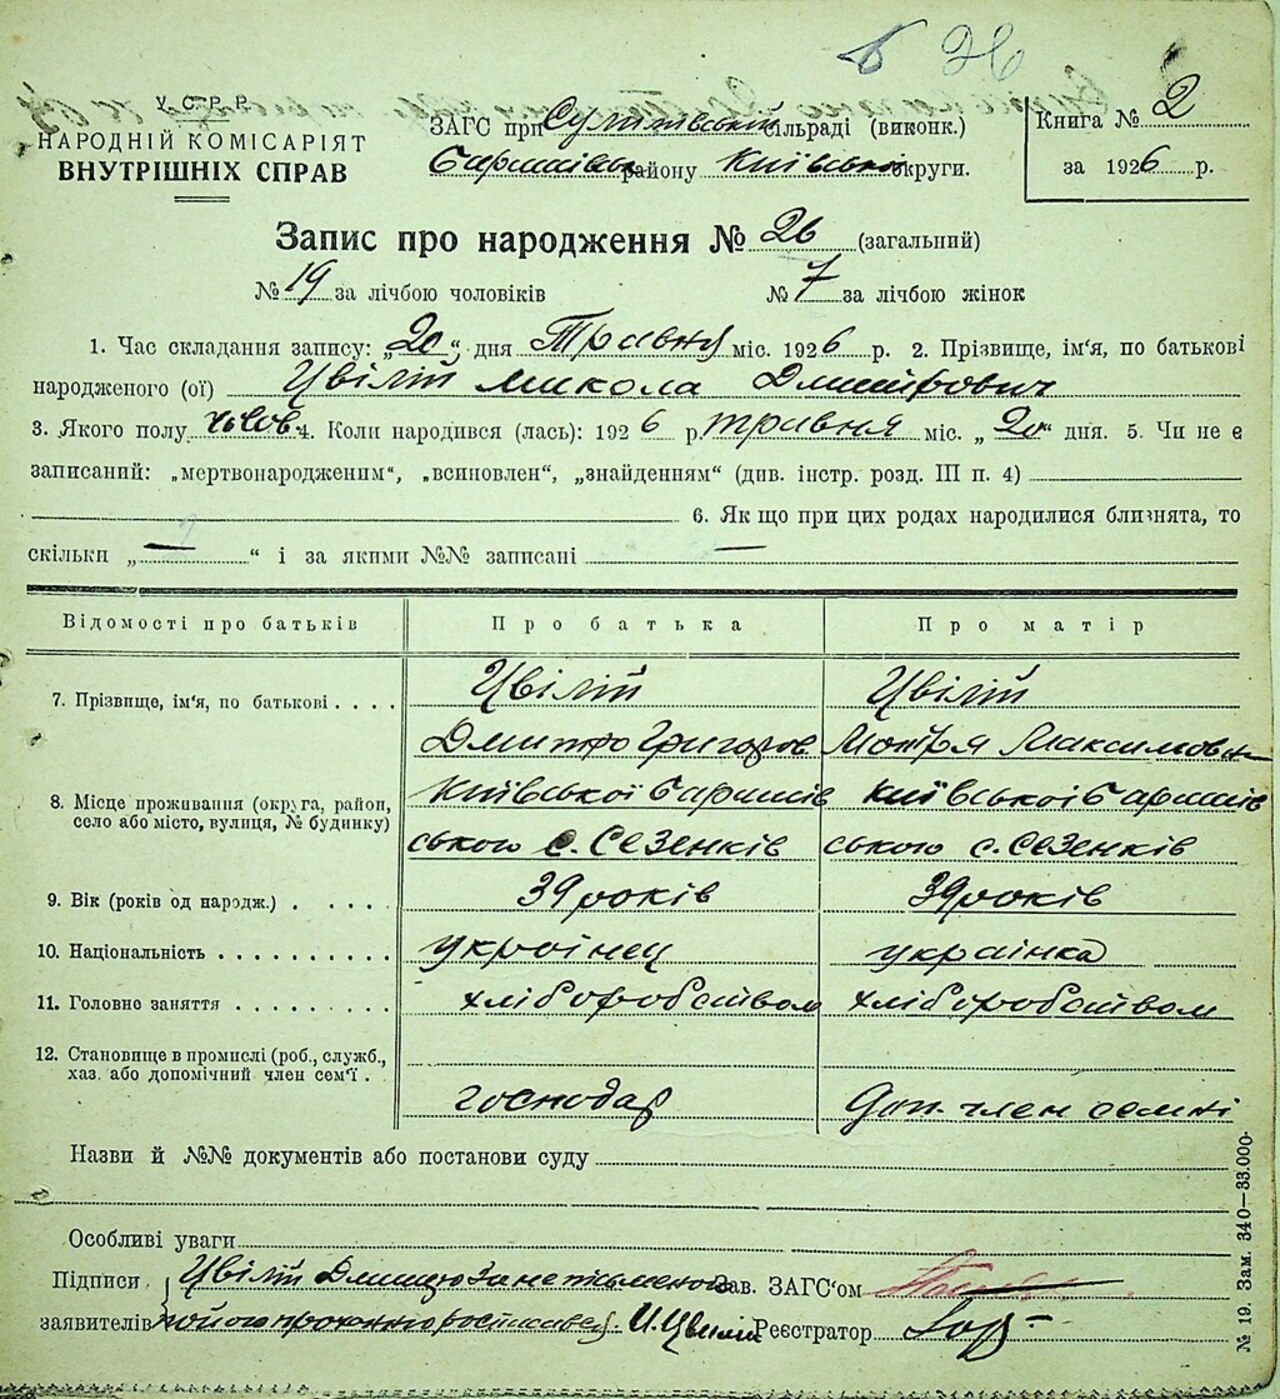 У. С. Р. Р.
НАРОДНІЙ КОМІСАРІЯТ
ВНУТРІШНІХ СПРАВ
ЗАГС при Сулимівській сільраді (виконк.)
Баришівськ району Київської округи.
Книга № 2
за 1926 р.
Запис про народження № 26 (загальний)
№ 19 за лічбою чоловіків № 7 за лічбою жінок
1. Час складання запису: „20“ дня Травня міс. 1926 р. 2. Прізвище, ім'я, по батькові
народженого (ої) Цвілій Микола Дмитрович
3. Якого полу чолов. 4. Коли народився (лась): 1926 р. травня міс. „20“ дня. 5. Чи не є
записаний: „мертвонародженим“, „всиновлен“, „знайденням“ (див. інстр. розд. III п. 4)
6. Як що при цих родах народилися близнята, то
скільки „—“ і за якими №№ записані —
Відомості про батьків Про батька Про матір
7. Прізвище, ім'я, по батькові . . . . Цвілій Цвілій
Дмитро Григоров Мотря Максимовн
8. Місце проживання (округа, район, село або місто, вулиця, № будинку) Київської Баришів Київської Баришів
ського с. Сезенків ського с. Сезенків
9. Вік (років од народж.) . . . . . 39 років 39 років
10. Національність . . . . . . . . . . українец українка
11. Головне заняття . . . . . . . . . хліборобством хліборобством
12. Становище в промислі (роб., служб., хаз. або допомічний член сем'ї .
господар доп. член семні
Назви й №№ документів або постанови суду
Особливі уваги
Підписи Цвілій Дмитро Зи неписьменого Зав. ЗАГС'ом
заявителів по його проханню росписався. И. Цвилій Реєстратор
№ 19. Зам. 340—33.000-